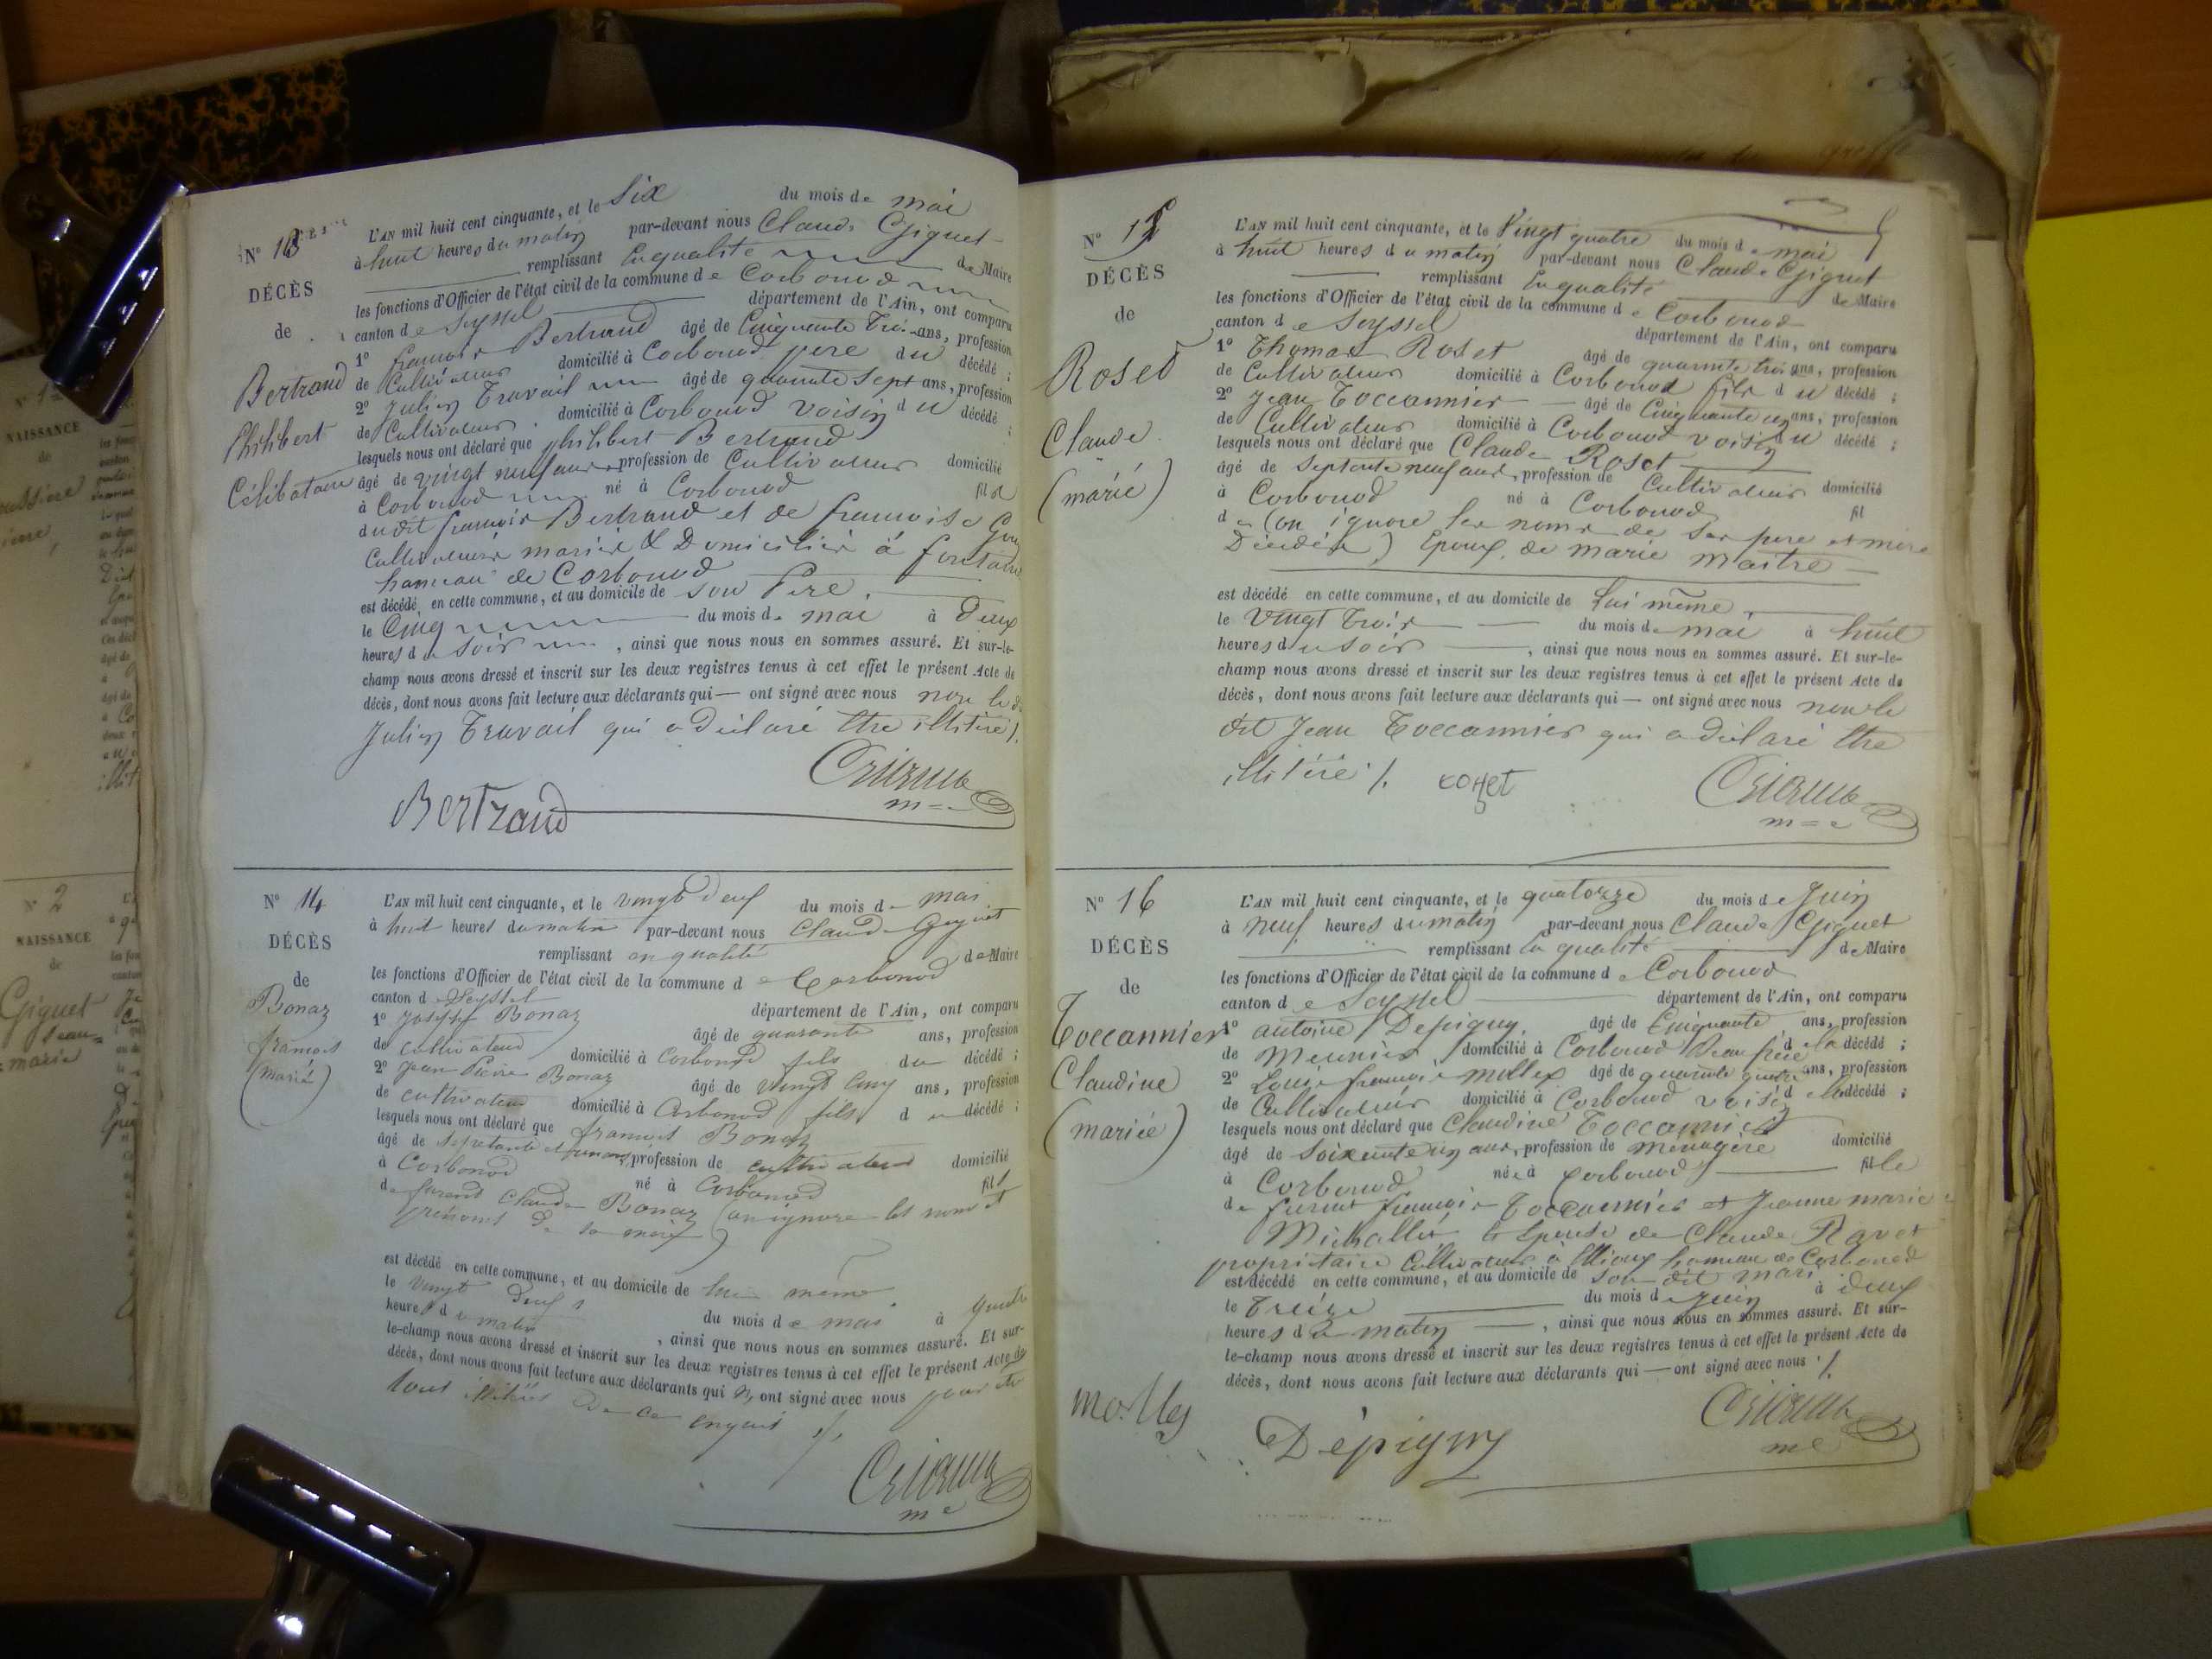 N° 13
DÉCÈS
de
Bertrand
Philibert
Célibataire
L'AN mil huit cent cinquante, et le Six du mois de mai
à huit heures du matin par-devant nous Claude Giguet
remplissant En qualité de Maire
les fonctions d'Officier de l'état civil de la commune de Corbonod
canton de Seyssel département de l'Ain, ont comparu
1° françois Bertrand âgé de Cinquante Trois ans, profession
de Cultivateur domicilié à Corbonod pere du décédé ;
2° Julien Travail âgé de quarante Sept ans, profession
de Cultivateur domicilié à Corbonod voisin du décédé ;
lesquels nous ont déclaré que philibert Bertrand
âgé de vingt neuf ans profession de Cultivateur domicilié
à Corbonod né à Corbonod fils
du dit françois Bertrand et de françoise
Cultivateurs mariés & Domiciliés à
hameau de Corbonod
est décédé en cette commune, et au domicile de son Père
le Cinq du mois de mai à Deux
heures du soir, ainsi que nous nous en sommes assuré. Et sur-le-
champ nous avons dressé et inscrit sur les deux registres tenus à cet effet le présent Acte de
décès, dont nous avons fait lecture aux déclarants qui — ont signé avec nous non le
Julien Travail qui a déclaré être illitéré /.
Bertrand
N° 14
DÉCÈS
de
Bonaz
françois
(marié)
L'AN mil huit cent cinquante, et le vingt deux du mois de mai
à huit heures du matin par-devant nous Claude Giguet
remplissant en qualité de Maire
les fonctions d'Officier de l'état civil de la commune de Corbonod
canton de Seyssel département de l'Ain, ont comparu
1° Joseph Bonaz âgé de quarante ans, profession
de cultivateur domicilié à Corbonod fils du décédé ;
2° Jean Pierre Bonaz âgé de vingt cinq ans, profession
de cultivateur domicilié à Corbonod fils du décédé ;
lesquels nous ont déclaré que françois Bonaz
âgé de septante et un ans, profession de cultivateur domicilié
à Corbonod né à Corbonod fils
de furent Claude Bonaz (on ignore les nom et
prénoms de sa mère)
est décédé en cette commune, et au domicile de lui même
le vingt deux du mois de mai à
heures du matin, ainsi que nous nous en sommes assuré. Et sur-
le-champ nous avons dressé et inscrit sur les deux registres tenus à cet effet le présent Acte de
décès, dont nous avons fait lecture aux déclarants qui n'ont signé avec nous pour être
tous illitérés de ce enquis ./.
N° 15
DÉCÈS
de
Roset
Claude
(marié)
L'AN mil huit cent cinquante, et le Vingt quatre du mois de mai
à huit heures du matin par-devant nous Claude Giguet
remplissant En qualité de Maire
les fonctions d'Officier de l'état civil de la commune de Corbonod
canton de Seyssel département de l'Ain, ont comparu
1° Thomas Roset âgé de quarante trois ans, profession
de Cultivateur domicilié à Corbonod fils du décédé ;
2° Jean Toccannier âgé de Cinquante un ans, profession
de Cultivateur domicilié à Corbonod voisin du décédé ;
lesquels nous ont déclaré que Claude Roset
âgé de Septente neuf ans, profession de Cultivateur domicilié
à Corbonod né à Corbonod fil
de (on ignore les noms de ses pere et mere
Décédés) Epoux de marie maitre
est décédé en cette commune, et au domicile de lui même
le vingt trois du mois de mai à huit
heures du soir, ainsi que nous nous en sommes assuré. Et sur-le-
champ nous avons dressé et inscrit sur les deux registres tenus à cet effet le présent Acte de
décès, dont nous avons fait lecture aux déclarants qui — ont signé avec nous non le
dit Jean Toccannier qui a déclaré être
illitéré /. rozet
N° 16
DÉCÈS
de
Toccannier
Claudine
(mariée)
L'AN mil huit cent cinquante, et le quatorze du mois de Juin
à neuf heures du matin par-devant nous Claude Giguet
remplissant En qualité de Maire
les fonctions d'Officier de l'état civil de la commune de Corbonod
canton de Seyssel département de l'Ain, ont comparu
1° antoine Depigny âgé de Cinquante ans, profession
de Meunier domicilié à Corbonod Beau frère de la décédé ;
2° Louis françois mollex âgé de quarante quatre ans, profession
de Cultivateur domicilié à Corbonod voisin de la décédé ;
lesquels nous ont déclaré que Claudine Toccannier
âgé de Soixante un ans, profession de Ménagère domicilié
à Corbonod née à Corbonod fille
de furent françois Toccannier et Jeanne marie
Michallet Epouse de Claude Ravet
propriétaire Cultivateur à hameau de Corbonod
est décédé en cette commune, et au domicile de son dit mari
le Treize du mois de Juin à deux
heures du matin, ainsi que nous nous en sommes assuré. Et sur-
le-champ nous avons dressé et inscrit sur les deux registres tenus à cet effet le présent Acte de
décès, dont nous avons fait lecture aux déclarants qui — ont signé avec nous ./.
Dépigny
N° 2
NAISSANCE
de
Giguet
Jean-
marie